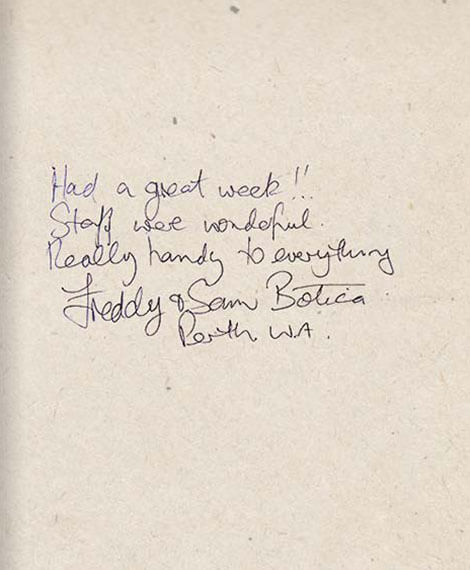 Had a great week!!
Staff were wonderful.
Really handy to everything
Freddy & Sam Botica
Perth. W.A.